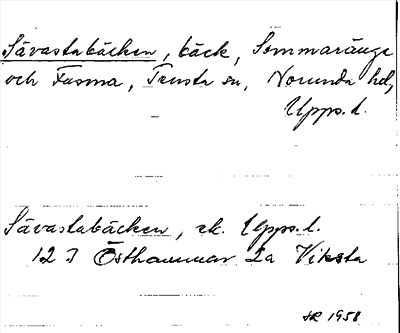 Sävastabäcken, bäck, Sommaränge
och Fasma, Tensta sn, Norunda hd,
Upps. l.
Sävastabäcken, ek. Upps. l.
12 I Östhammar 2a Viksta
1958